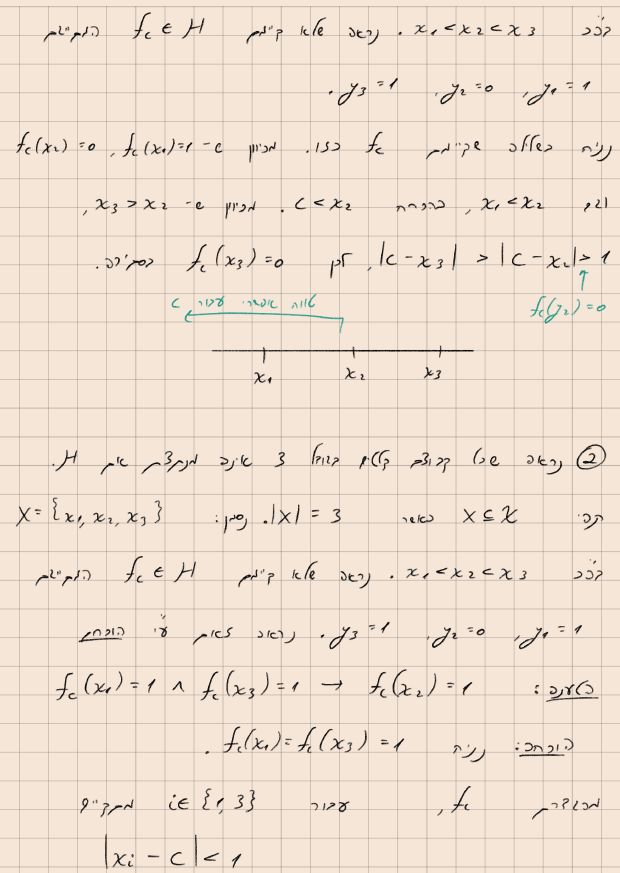 בה״כ x₁ < x₂ < x₃. נראה שלא קיימת f_c ∈ H המקיימת
y₁ = 1, y₂ = 0, y₃ = 1.
נניח בשלילה שקיימת f_c כזו. מכיוון ש- f_c(x₁)=1, f_c(x₂)=0
וגם x₁ < x₂, בהכרח c < x₂. מכיוון ש- x₃ > x₂,
|c - x₃| > |c - x₂| > 1, לכן f_c(x₃) = 0 בסתירה.
טווח אפשרי עבור c
f_c(y₂) = 0
x₁ x₂ x₃
② נראה שכל קבוצת קלטים בגודל 3 אינה מנתצת את H.
תהי X ⊆ X כאשר |X| = 3. נסמן: X = {x₁, x₂, x₃}
בה״כ x₁ < x₂ < x₃. נראה שלא קיימת f_c ∈ H המקיימת
y₁ = 1, y₂ = 0, y₃ = 1. נראה זאת ע״י הוכחת
הטענה: f_c(x₁) = 1 ∧ f_c(x₃) = 1 → f_c(x₂) = 1
הוכחה: נניח f_c(x₁) = f_c(x₃) = 1.
מהגדרת f_c, עבור i ∈ {1, 3} מתקיים
|xᵢ - c| < 1